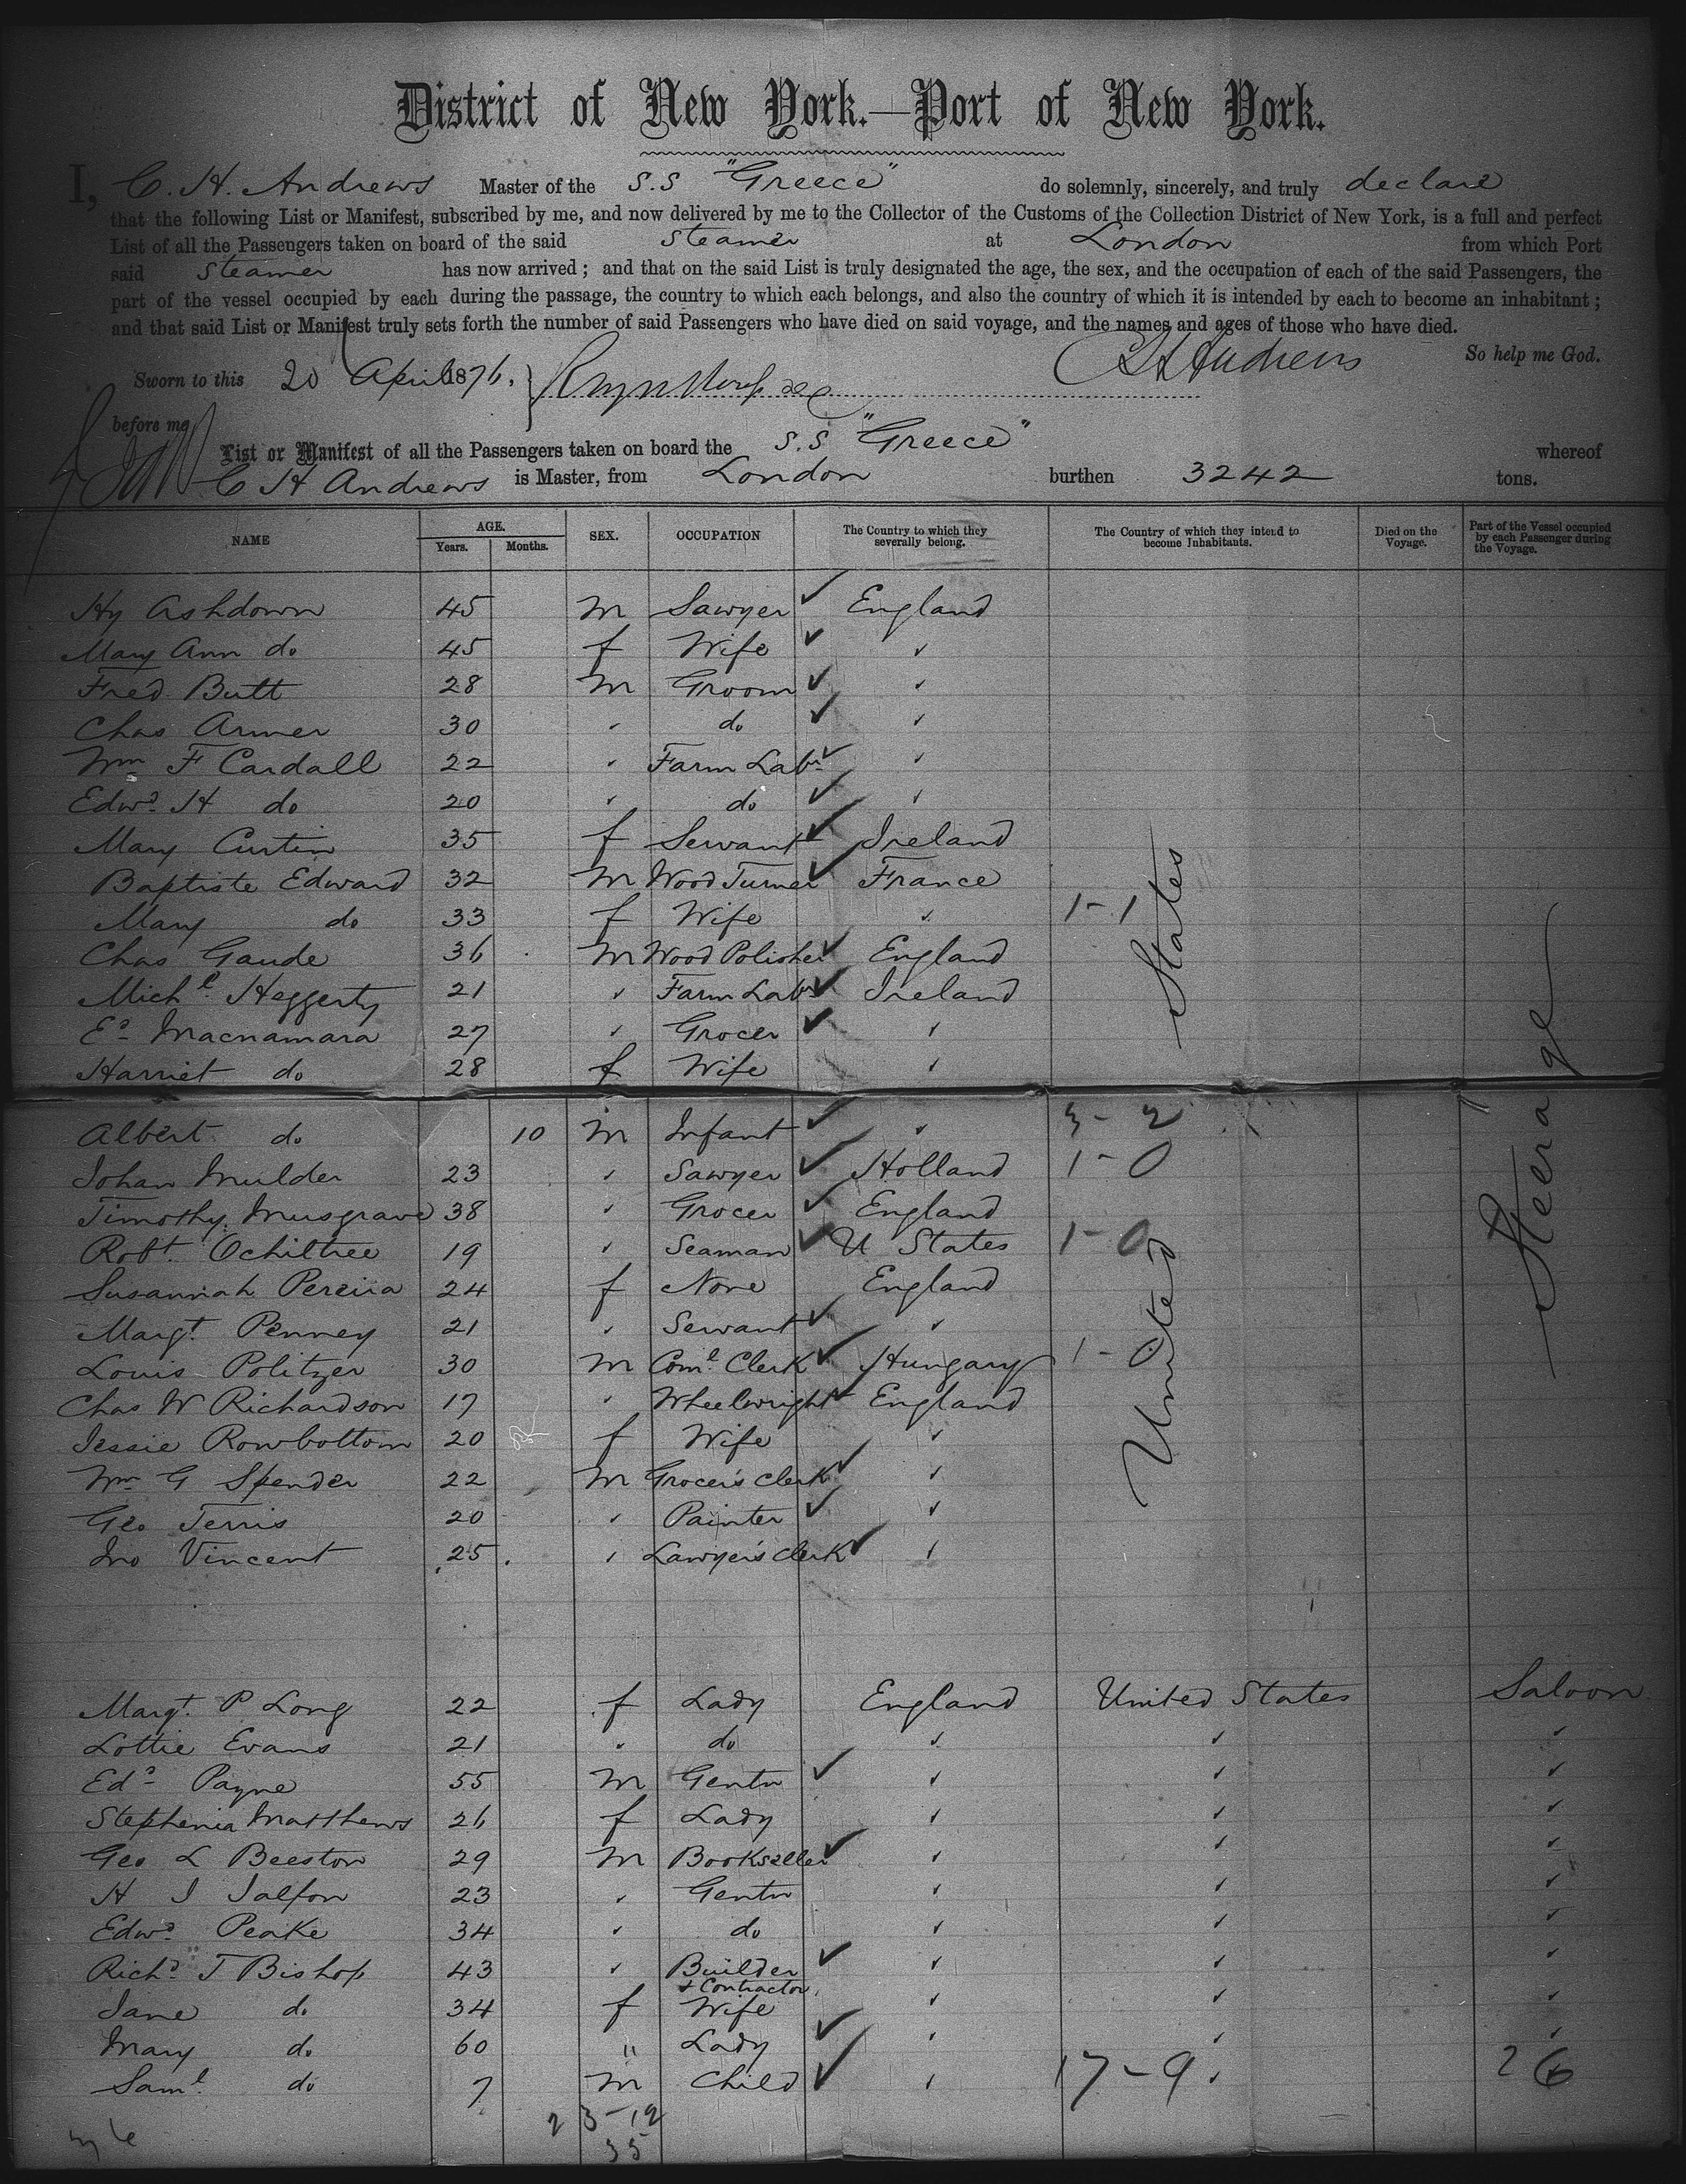 District of New York.—Port of New York.
I, C. H. Andrews Master of the S.S "Greece" do solemnly, sincerely, and truly declare
that the following List or Manifest, subscribed by me, and now delivered by me to the Collector of the Customs of the Collection District of New York, is a full and perfect
List of all the Passengers taken on board of the said Steamer at London from which Port
said Steamer has now arrived; and that on the said List is truly designated the age, the sex, and the occupation of each of the said Passengers, the
part of the vessel occupied by each during the passage, the country to which each belongs, and also the country of which it is intended by each to become an inhabitant;
and that said List or Manifest truly sets forth the number of said Passengers who have died on said voyage, and the names and ages of those who have died.
So help me God.
CH Andrews
Sworn to this 20 April 1876.
before me
List or Manifest of all the Passengers taken on board the S.S. "Greece" whereof
C H Andrews is Master, from London burthen 3242 tons.
NAME AGE. Years. Months. SEX. OCCUPATION The Country to which they severally belong. The Country of which they intend to become Inhabitants. Died on the Voyage. Part of the Vessel occupied by each Passenger during the Voyage.
Hy Ashdown 45 M Sawyer England
Mary Ann do 45 f Wife
Fred Butt 28 M Groom
Chas Armer 30 do
Wm F Cardall 22 Farm Labr
Edwd H do 20 do
Mary Curtin 35 f Servant Ireland
Baptiste Edward 32 M Wood Turner France
Mary do 33 f Wife 1-1
Chas Gaude 36 M Wood Polisher England
Michl Heggerty 21 Farm Labr Ireland
Ed Macnamara 27 Grocer
Harriet do 28 f Wife
Albert do 10 M Infant 3-2
Johan Mulder 23 Sawyer Holland 1-0
Timothy Musgrave 38 Grocer England
Robt Ochiltree 19 Seaman U States 1-0
Susannah Pereira 24 f None England
Margt Penney 21 Servant
Louis Politzer 30 M Coml Clerk Hungary 1-0
Chas W Richardson 17 Wheelwright England
Jessie Rowbottom 20 f Wife
Wm G Spender 22 M Grocer's Clerk
Geo Terris 20 Painter
Jno Vincent 25 Lawyer's Clerk
United States
Steerage
Margt P Long 22 f Lady England United States Saloon
Lottie Evans 21 do
Edd Payne 55 M Gentn
Stephenia Matthews 26 f Lady
Geo L Beeston 29 M Bookseller
H J Jalfon 23 Gentn
Edwd Peake 34 do
Richd T Bishop 43 Builder & Contractor
Jane do 34 f Wife
Mary do 60 " Lady
Saml do 7 M Child 17-9 26
23-12
35